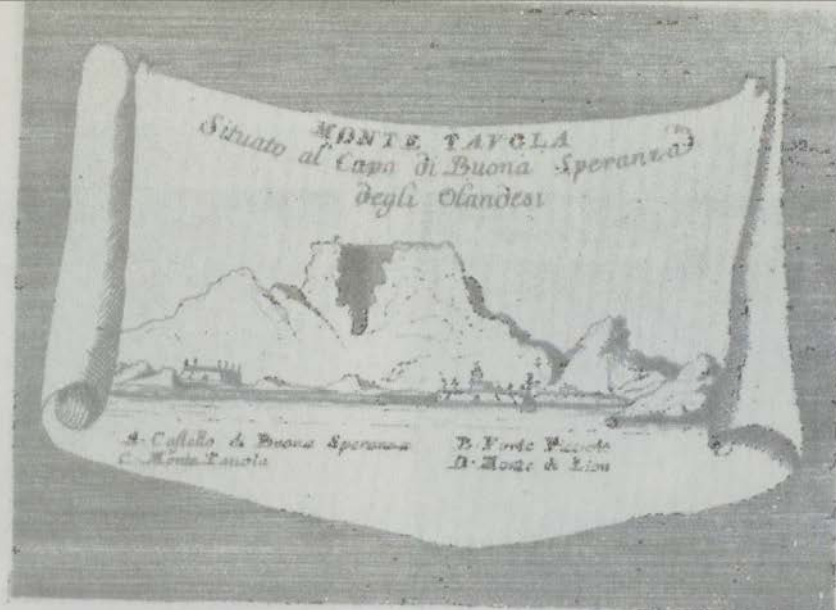 MONTE TAVOLA
Situato al Capo di Buona Speranza
degli Olandesi
A. Castello di Buona Speranza
B. Forte Piccolo
C. Monte Tavola
D. Monte di Lion